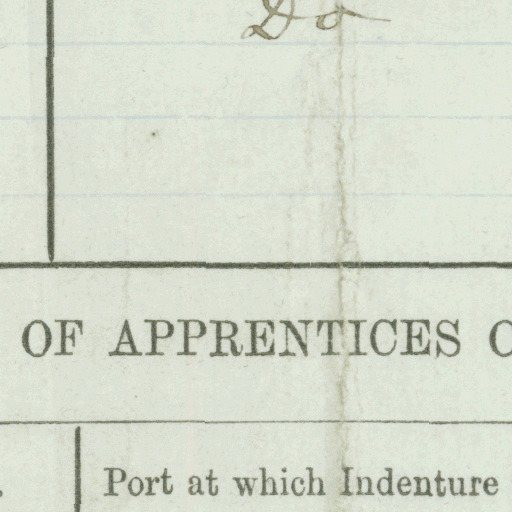 Do
OF APPRENTICES
Port at which Indenture